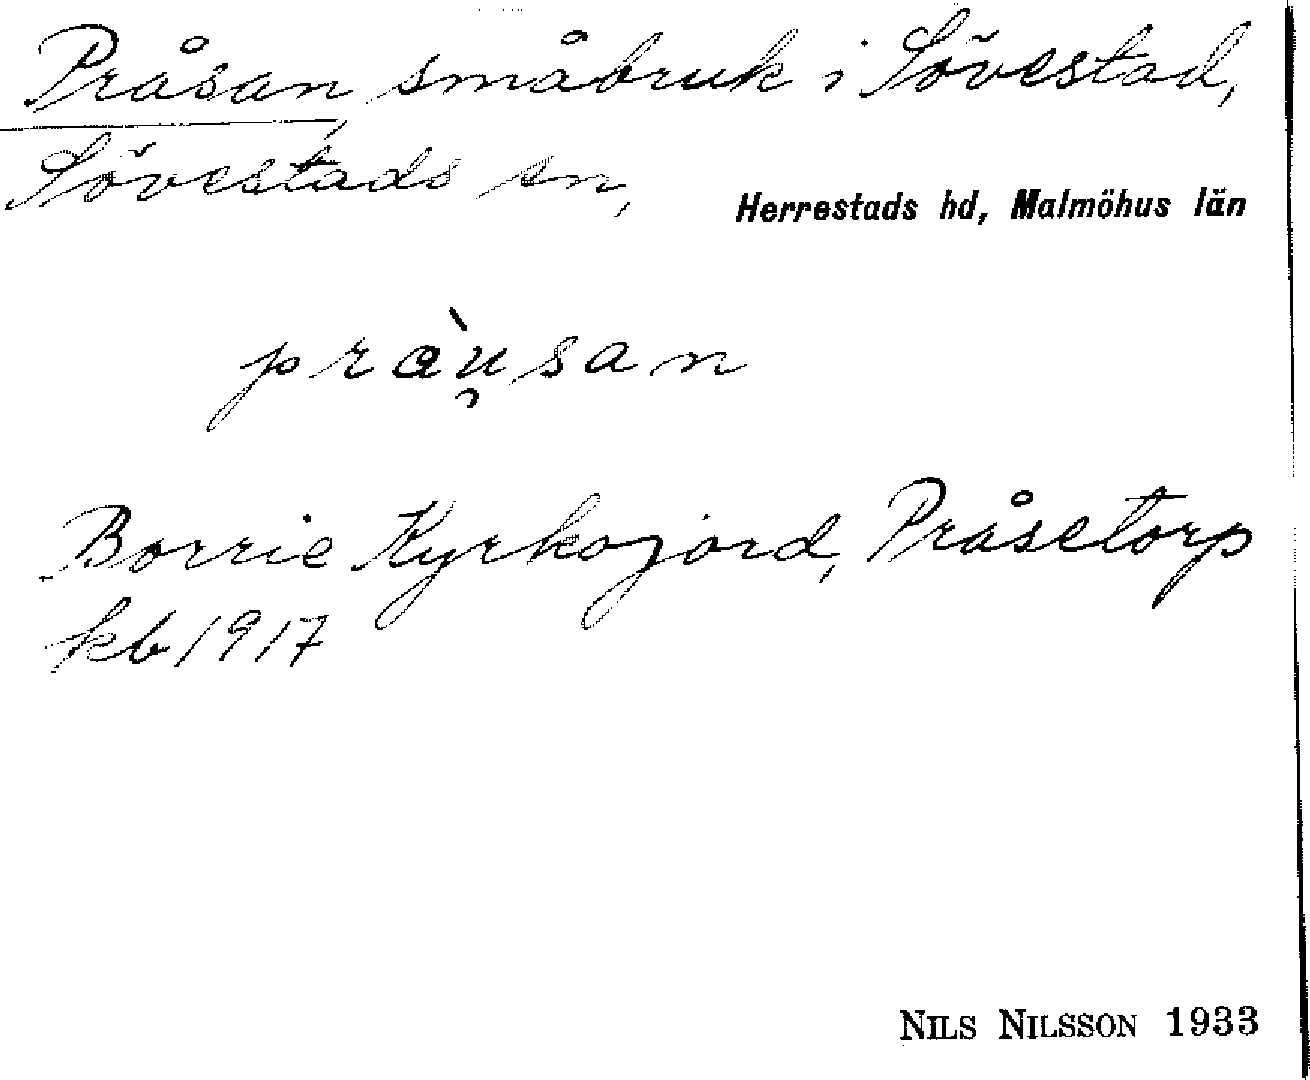 Pråsan, småbruk i Sövestad,
Sövestads sn,
Herrestads hd, Malmöhus län
præ̀u̯san
Borrie Kyrkojord, Pråsetorp
kb 1917
NILS NILSSON 1933